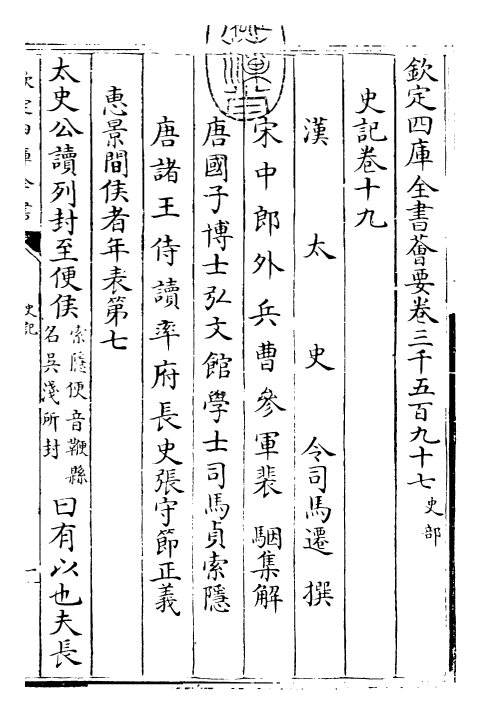 欽定四庫全書薈要卷三千五百九十七史部
史記卷十九
漢太史令司馬遷撰
宋中郎外兵曹參軍裴駰集解
唐國子博士弘文館學士司馬貞索隱
唐諸王侍讀率府長史張守節正義
惠景間侯者年表第七
太史公讀列封至便侯索隱便音鞭縣名吳淺所封曰有以也夫長
欽定四庫全書
史記
一